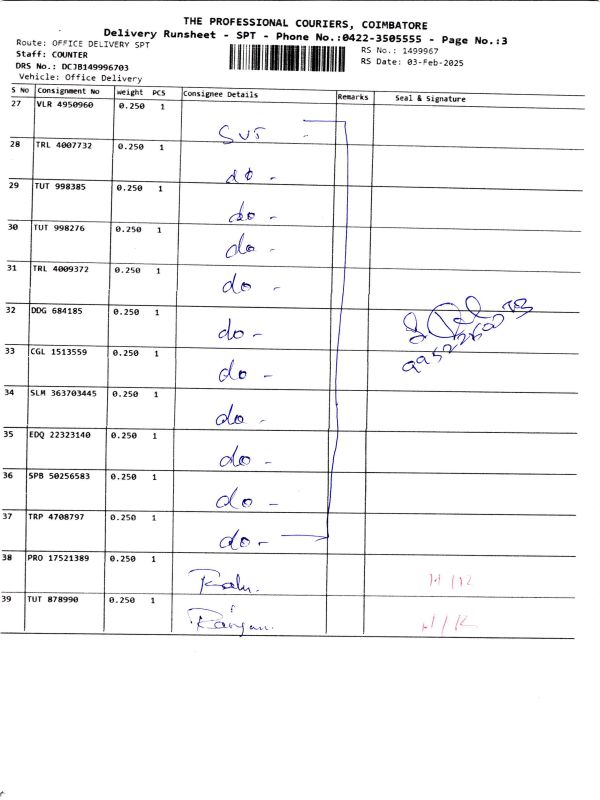 THE PROFESSIONAL COURIERS, COIMBATORE
Delivery Runsheet - SPT - Phone No.:0422-3505555 - Page No.:3
Route: OFFICE DELIVERY SPT
RS No.: 1499967
Staff: COUNTER
RS Date: 03-Feb-2025
DRS No.: DCJB149996703
Vehicle: Office Delivery
S No Consignment No Weight PCS Consignee Details Remarks Seal & Signature
27 VLR 4950960 0.250 1
28 TRL 4007732 0.250 1 do -
29 TUT 998385 0.250 1 do -
30 TUT 998276 0.250 1 do -
31 TRL 4009372 0.250 1 do -
32 DDG 684185 0.250 1 do -
33 CGL 1513559 0.250 1 do -
34 SLM 363703445 0.250 1 do -
35 EDQ 22323140 0.250 1 do -
36 SPB 50256583 0.250 1 do -
37 TRP 4708797 0.250 1 do -
38 PRO 17521389 0.250 1
39 TUT 878990 0.250 1